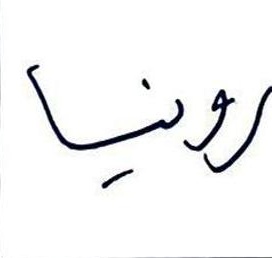 رونيا